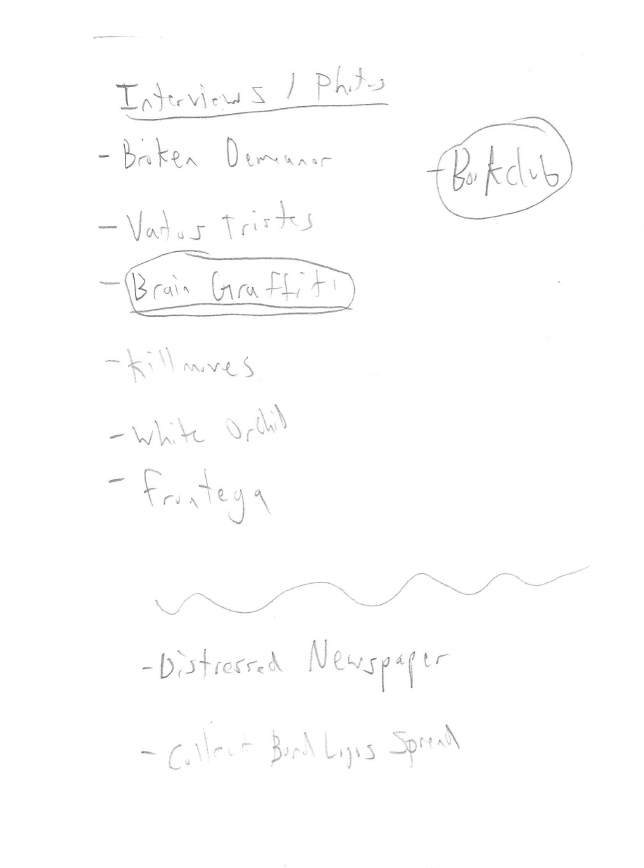 Interviews / Photos
- Broken Demeanor
- Bookclub
- Vatos Tristes
- Brain Graffiti
- Killmoves
- White Orchid
- Frontega
- Distressed Newspaper
- Collect Band Logos Spread